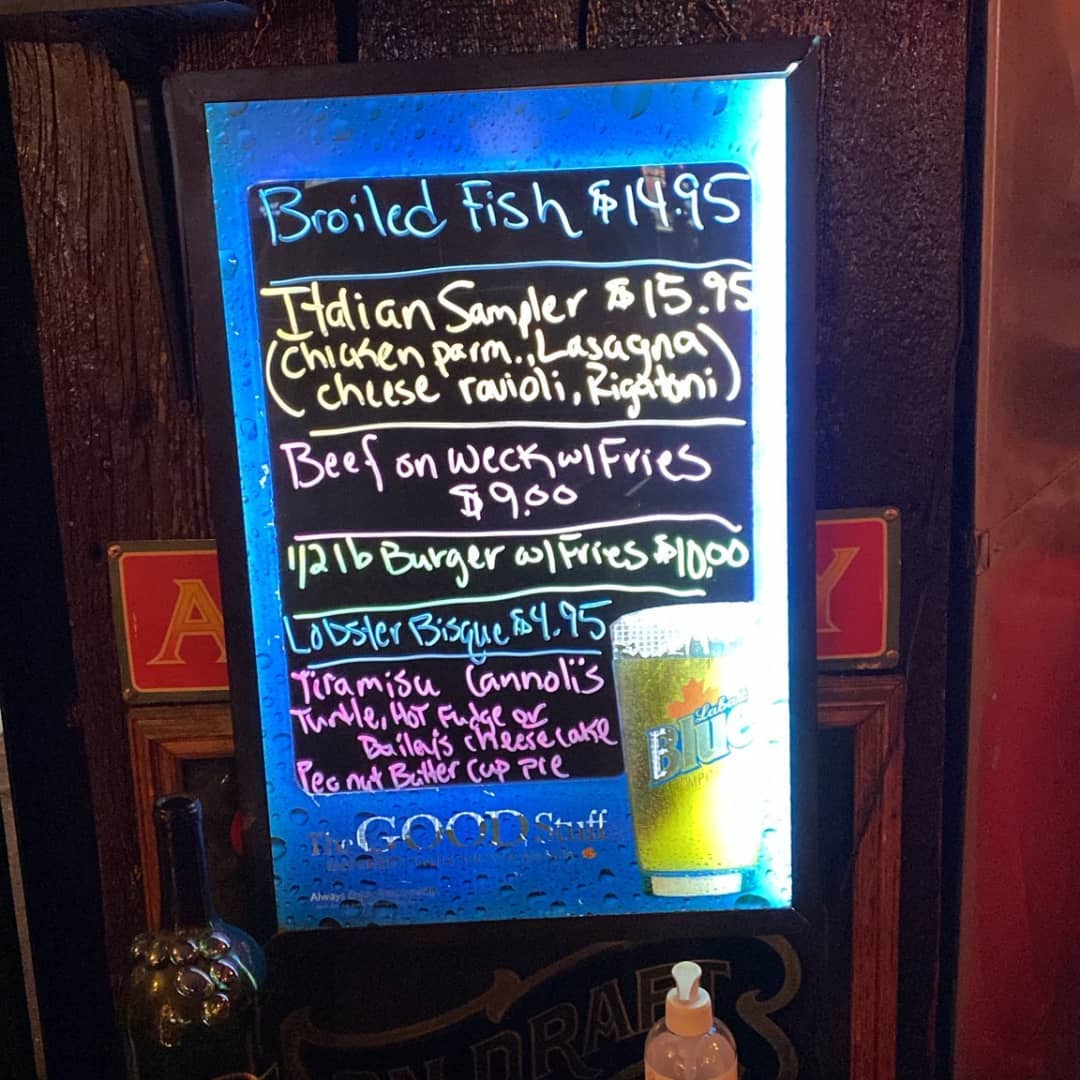 Broiled Fish $14.95
Italian Sampler $15.95
(Chicken parm., Lasagna
cheese ravioli, Rigatoni)
Beef on Weck w/Fries
$9.00
1/2 lb Burger w/Fries $10.00
Lobster Bisque $4.95
Tiramisu Cannoli's
Turtle, Hot Fudge or
Bailey's cheesecake
Peanut Butter Cup Pie
Labatt
Blue
The GOOD Stuff
Always
A
Y
ON DRAFT